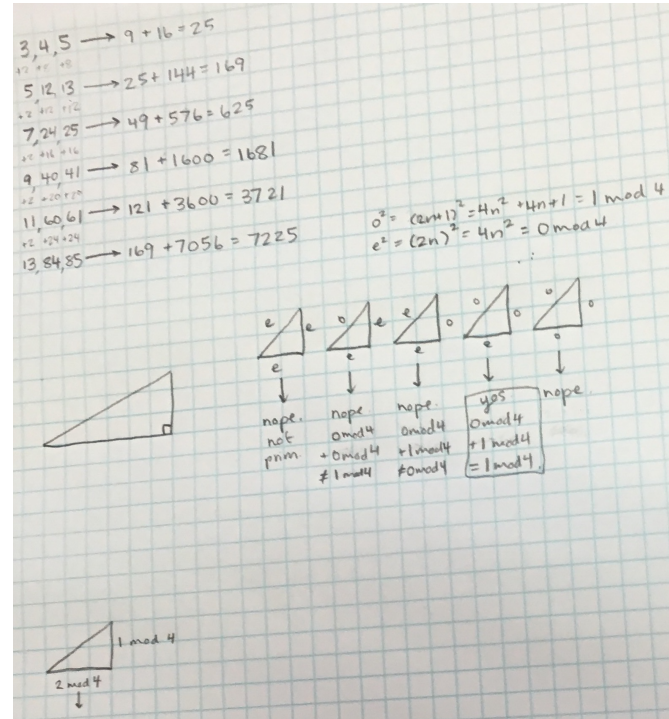 3, 4, 5 → 9 + 16 = 25
+2 +8 +8
5, 12, 13 → 25 + 144 = 169
+2 +12 +12
7, 24, 25 → 49 + 576 = 625
+2 +16 +16
9, 40, 41 → 81 + 1600 = 1681
+2 +20 +20
11, 60, 61 → 121 + 3600 = 3721
+2 +24 +24
13, 84, 85 → 169 + 7056 = 7225
o² = (2n+1)² = 4n² + 4n + 1 = 1 mod 4
e² = (2n)² = 4n² = 0 mod 4
e e e
o e e
e o e
o o e
o o o
nope.
not
prim.
nope
0 mod 4
+ 0 mod 4
≠ 1 mod 4
nope.
0 mod 4
+ 1 mod 4
≠ 0 mod 4
yes
0 mod 4
+ 1 mod 4
= 1 mod 4
nope.
1 mod 4
2 mod 4